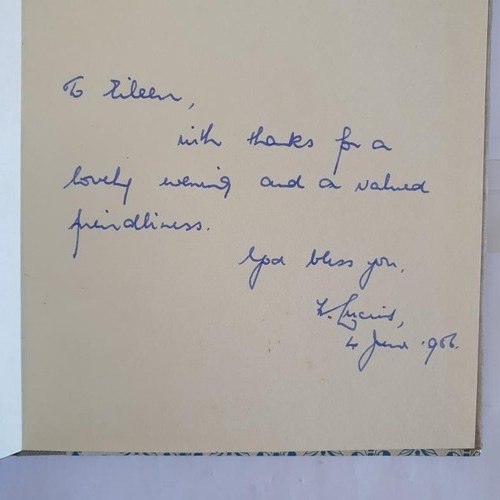 To Eileen,
with thanks for a
lovely evening and a valued
friendliness.
God bless you,
Lucius,
4 June 1966.